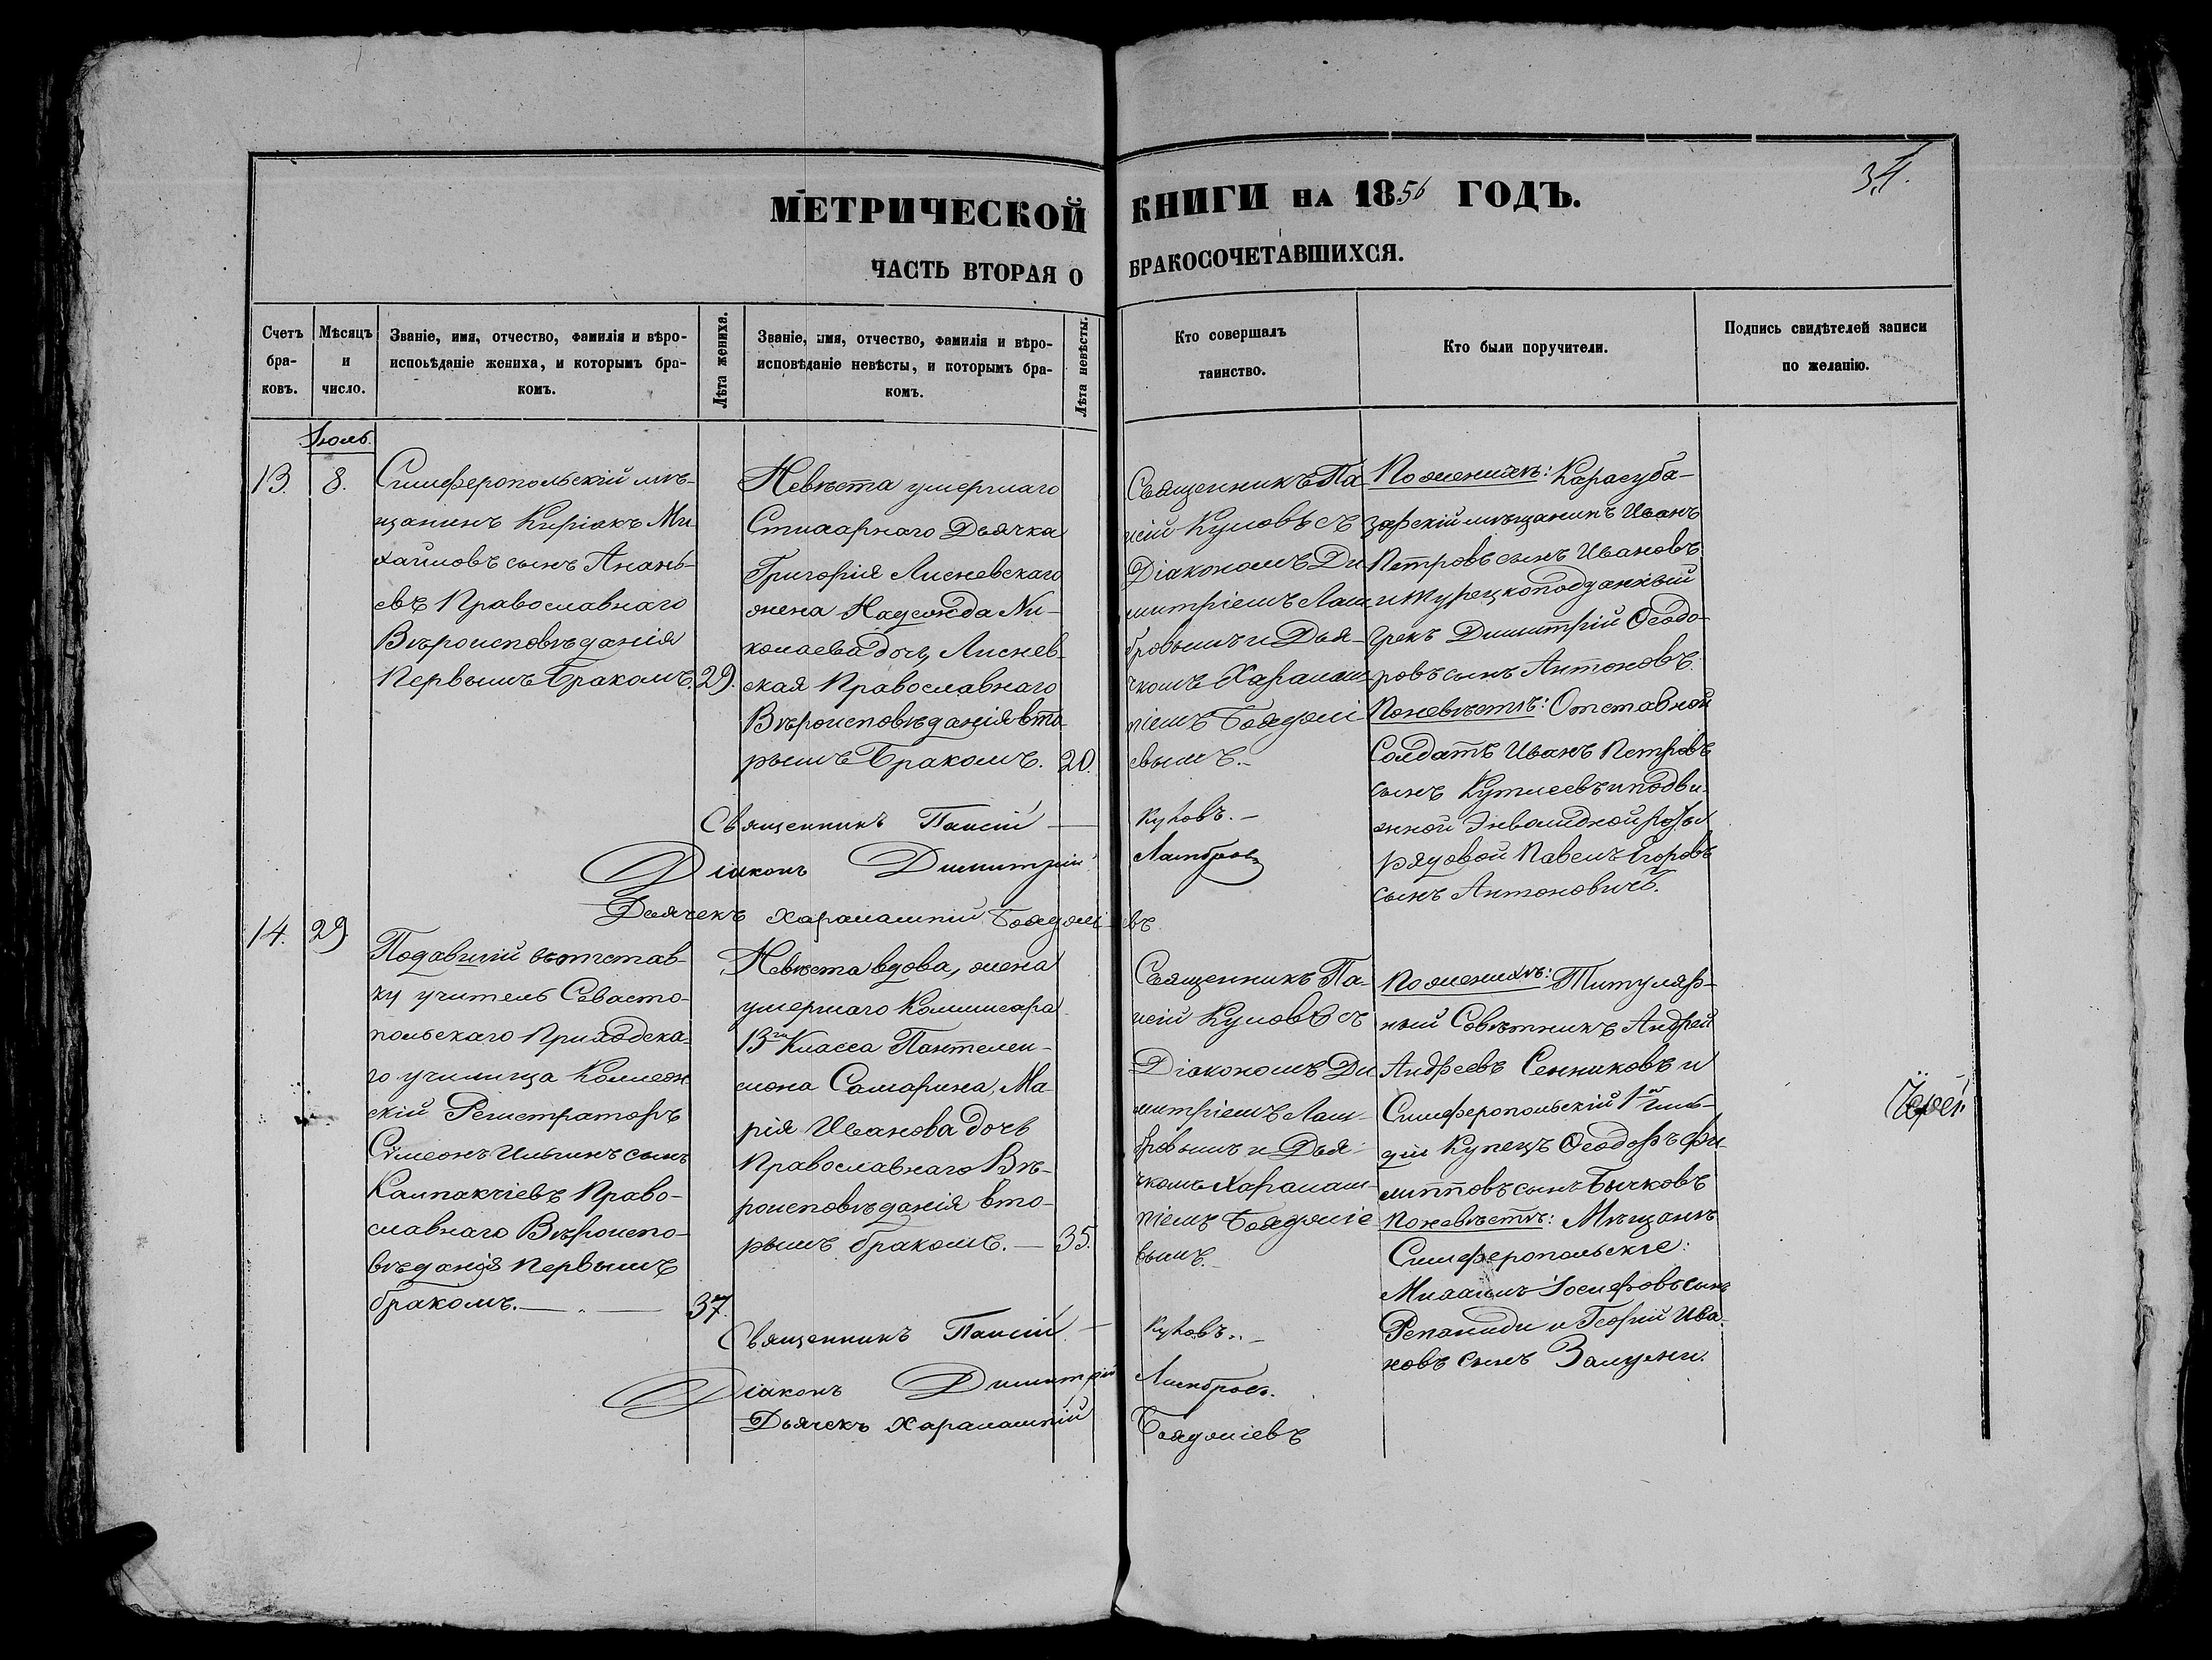 34.
МЕТРИЧЕСКОЙ КНИГИ НА 1856 ГОДЪ.
ЧАСТЬ ВТОРАЯ О БРАКОСОЧЕТАВШИХСЯ.
Счетъ бра-
ковъ.
Мѣсяцъ
и
число.
Званіе, имя, отчество, фамилія и вѣро-
исповѣданіе жениха, и которымъ бра-
комъ.
Лѣта жениха.
Званіе, имя, отчество, фамилія и вѣро-
исповѣданіе невѣсты, и которымъ бра-
комъ.
Лѣта невѣсты.
Кто совершалъ
таинство.
Кто были поручители.
Подпись свидѣтелей записи
по желанію.
Іюль.
13.
8.
Симферопольскій мѣ-
щанинъ Киріакъ Ми
хаиловъ сынъ Анань-
евъ Православнаго
Вѣроисповѣданія
Первымъ Бракомъ.
29.
Невѣста умершаго
Стихарнаго Дьячка
Григорія Лисневскаго
жена Надежда Ни-
колаева дочь Лиснев-
ская Православнаго
Вѣроисповѣданія вто-
рымъ Бракомъ.
20.
Священникъ Па
исій Куловъ съ
Діакономъ Ди
митріемъ Лам
бровымъ и Дья-
чкомъ Харалам-
піемъ Бояджі
евымъ.
По женихѣ: Карасуба-
зарскій мѣщанинъ Иванъ
Петровъ сынъ Ивановъ
и турецкоподданный
Грекъ Димитрій Ѳеодо-
ровъ сынъ Антоновъ.
По невѣстѣ: Отставной
Солдатъ Иванъ Петровъ
сынъ и подви-
жной Инвалидной роты
рядовой Павелъ Егоровъ
сынъ Антоновичъ.
Священникъ Паисій — Куловъ.
Діаконъ Димитрій Ламбровъ
Дьячекъ Харалампій Бояджіевъ
14.
29.
Подавшій въ отстав-
ку учитель Севасто-
польскаго Приходска-
го училища Коллеж
скій Регистраторъ
Сѵмеонъ Ильинъ сынъ
Калпакчіевъ Право-
славнаго Вѣроиспо-
вѣданія Первымъ
бракомъ.
37.
Невѣста вдова, жена
умершаго Коммисара
13го Класса Пантелеи-
мона Самарина, Ма-
рія Иванова дочь
Православнаго Вѣ-
роисповѣданія вто-
рымъ бракомъ.
35.
Священникъ Па-
исій Куловъ съ
Діакономъ Ди
митріемъ Лам-
бровымъ и Дья-
чкомъ Харалам-
піемъ Бояджіе
вымъ.
По женихѣ: Титуляр-
ный Совѣтникъ Андрей
Андреевъ Сенниковъ и
Симферопольскій 1ой гиль-
діи Купецъ Ѳеодоръ Фи-
липповъ сынъ Бычковъ
По невѣстѣ: Мѣщане
Симферопольскіе:
Михаилъ Іосифовъ сынъ
Репаниди и Георгій Ива-
новъ сынъ
Священникъ Паисій — Куловъ.
Діаконъ Димитрій Ламбровъ.
Дьячекъ Харалампій Бояджіевъ